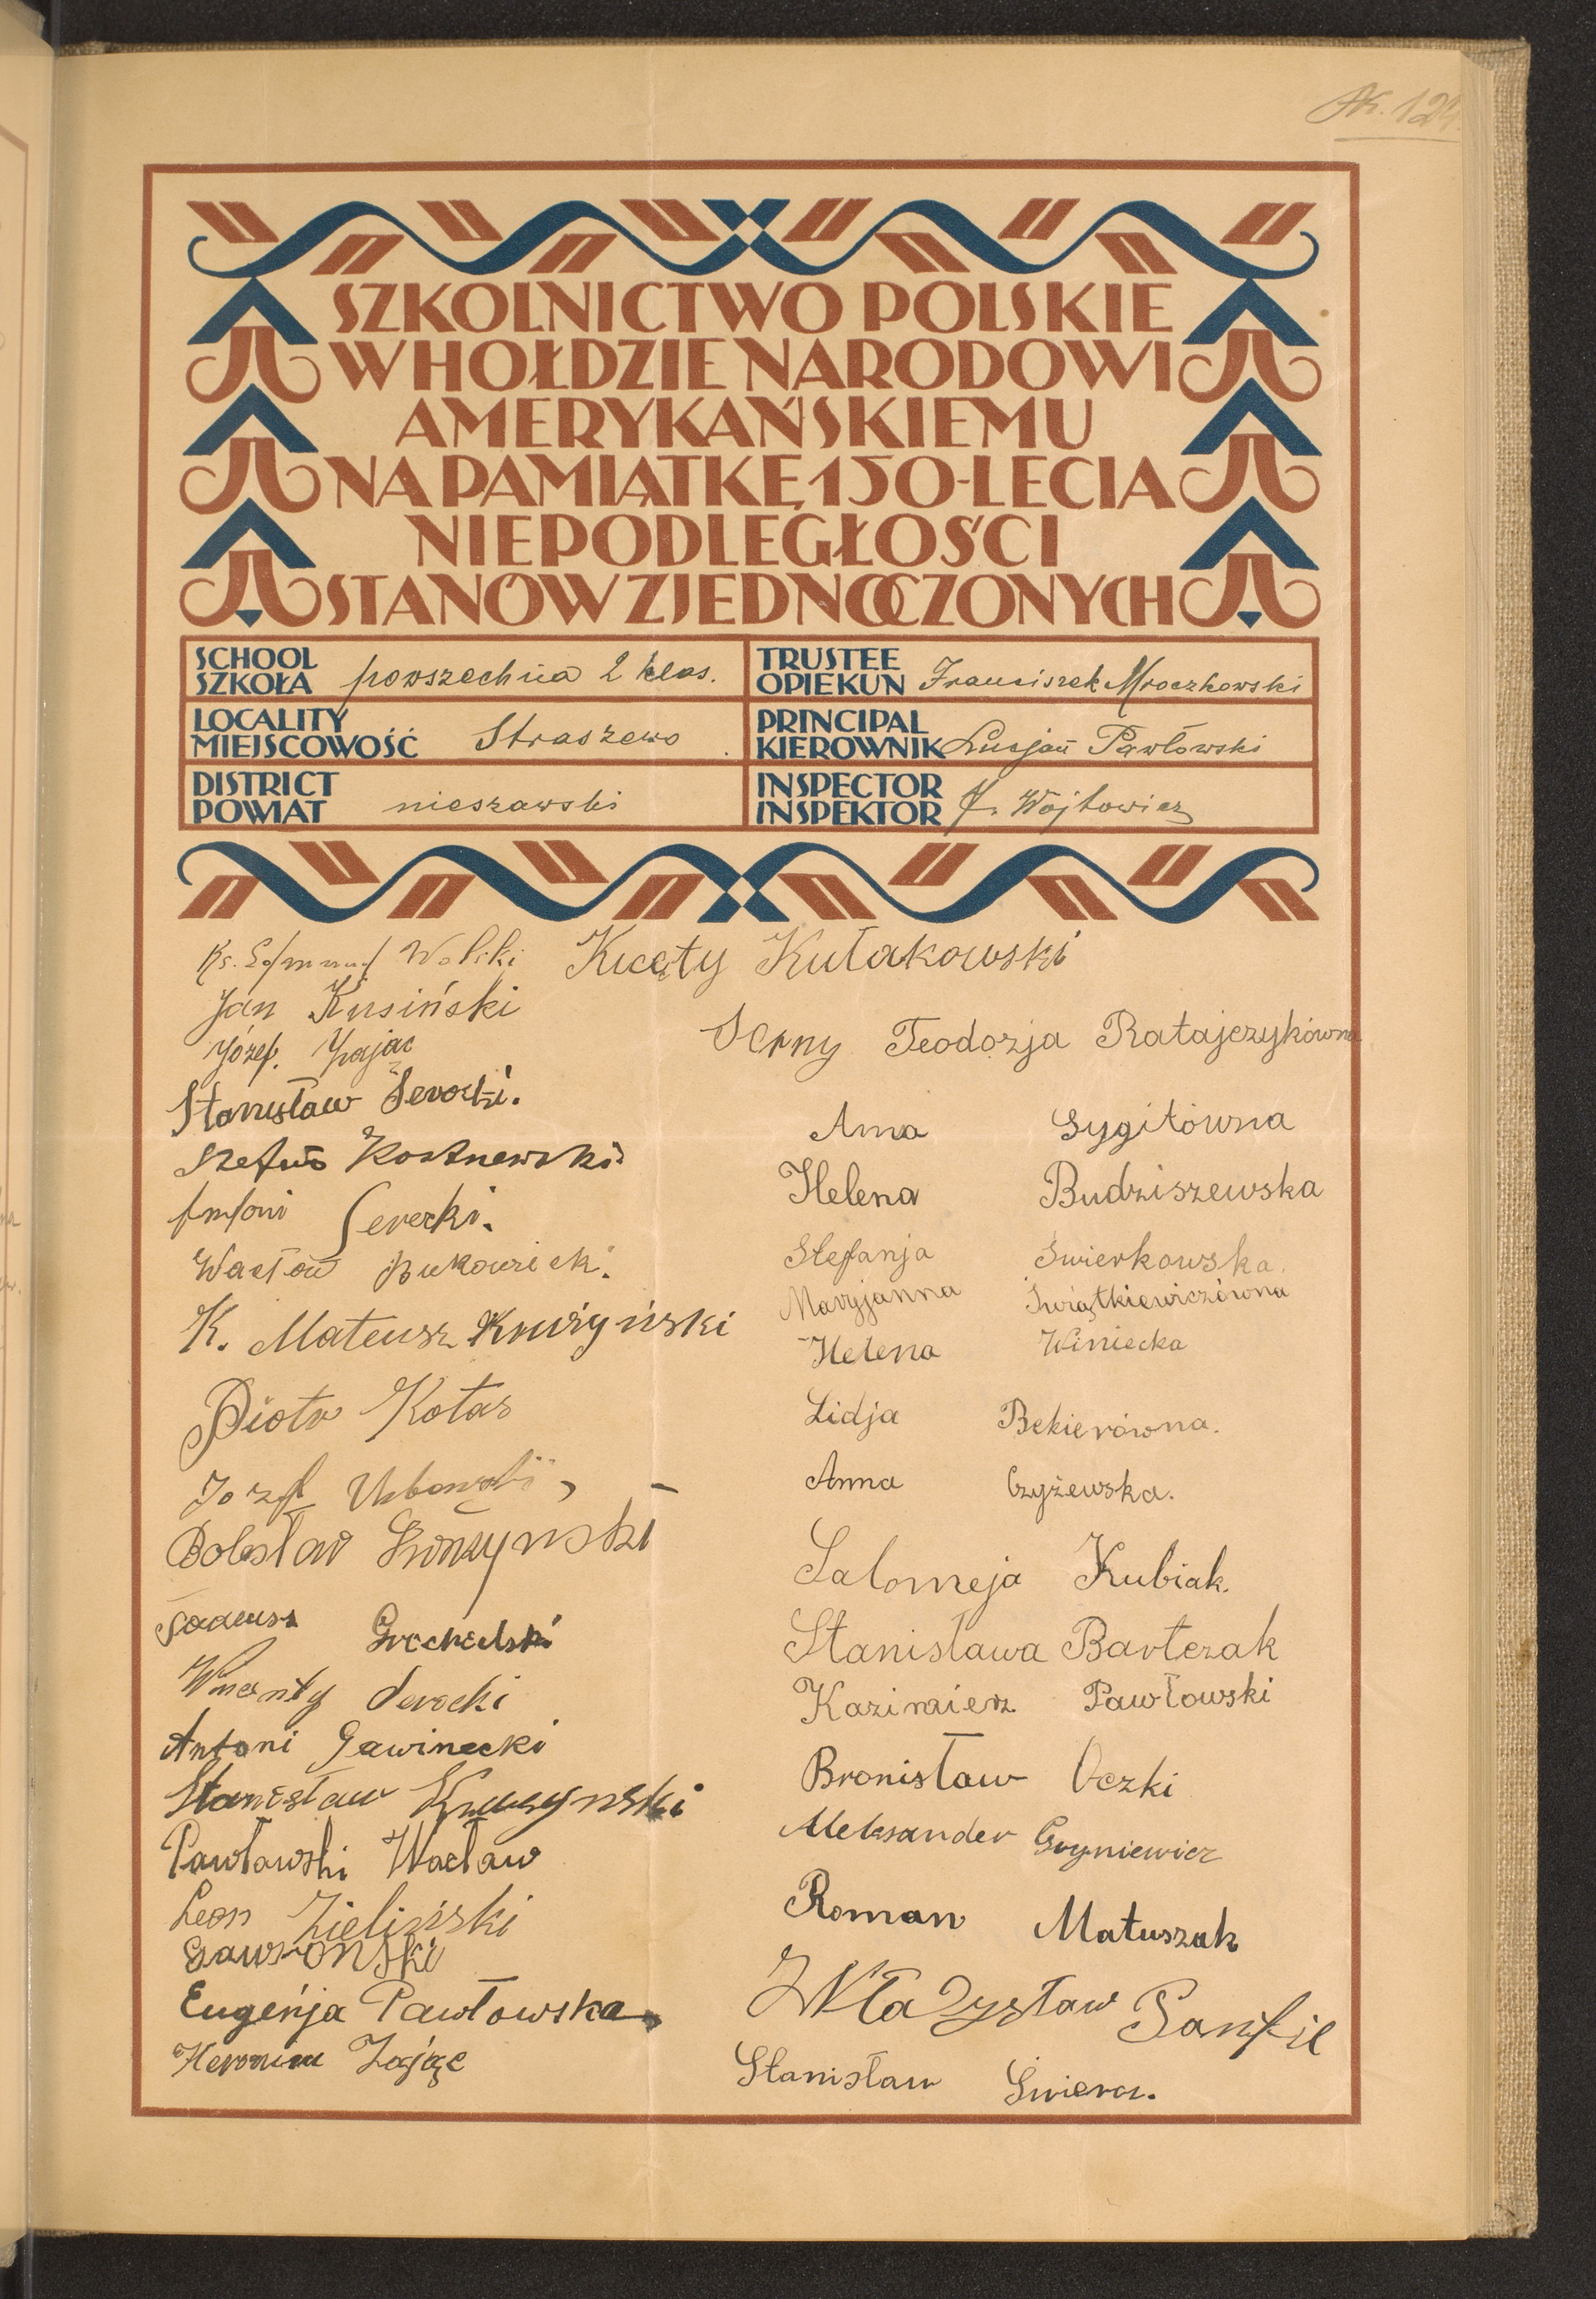 SZKOLNICTWO POLSKIE
W HOŁDZIE NARODOWI
AMERYKAŃSKIEMU
NA PAMIĄTKĘ 150-LECIA
NIEPODLEGŁOŚCI
STANÓW ZJEDNOCZONYCH
SCHOOL
SZKOŁA powszechna 2 klas.
LOCALITY
MIEJSCOWOŚĆ Straszewo
DISTRICT
POWIAT nieszawski
TRUSTEE
OPIEKUN Franciszek Mroczkowski
PRINCIPAL
KIEROWNIK Lucjan Pawłowski
INSPECTOR
INSPEKTOR Wójtowicz
Ks. Edmund Wolski
Jan Kusiński
Józef. Zając
Stanisław Serocki.
Kostnewski
Antoni Serecki.
Wacław Bukowiecki.
K. Mateusz Krużyński
Piotr Kotas
Józef Urbowski
Bolesław
Tadeusz Grochulski
Wincenty Serocki
Antoni Gawinecki
Stanisław
Pawlawski Wacław
Leon Zieliński
Gawronski
Eugenja Pawłowska
Heronim Zając
Kułakowski
Teodozja Ratajczykówna
Anna Gygitówna
Helena Budziszewska
Stefanja Świerkowska.
Maryjanna Świątkiewiczówna
Helena Winiecka
Lidja Bekierówna.
Anna Czyżewska.
Salomeja Kubiak.
Stanisława Bartczak
Kazimierz Pawłowski
Bronisław Oczki
Aleksander Gryniewicz
Roman Matuszak
Władysław Panfil
Stanisław Świercz.